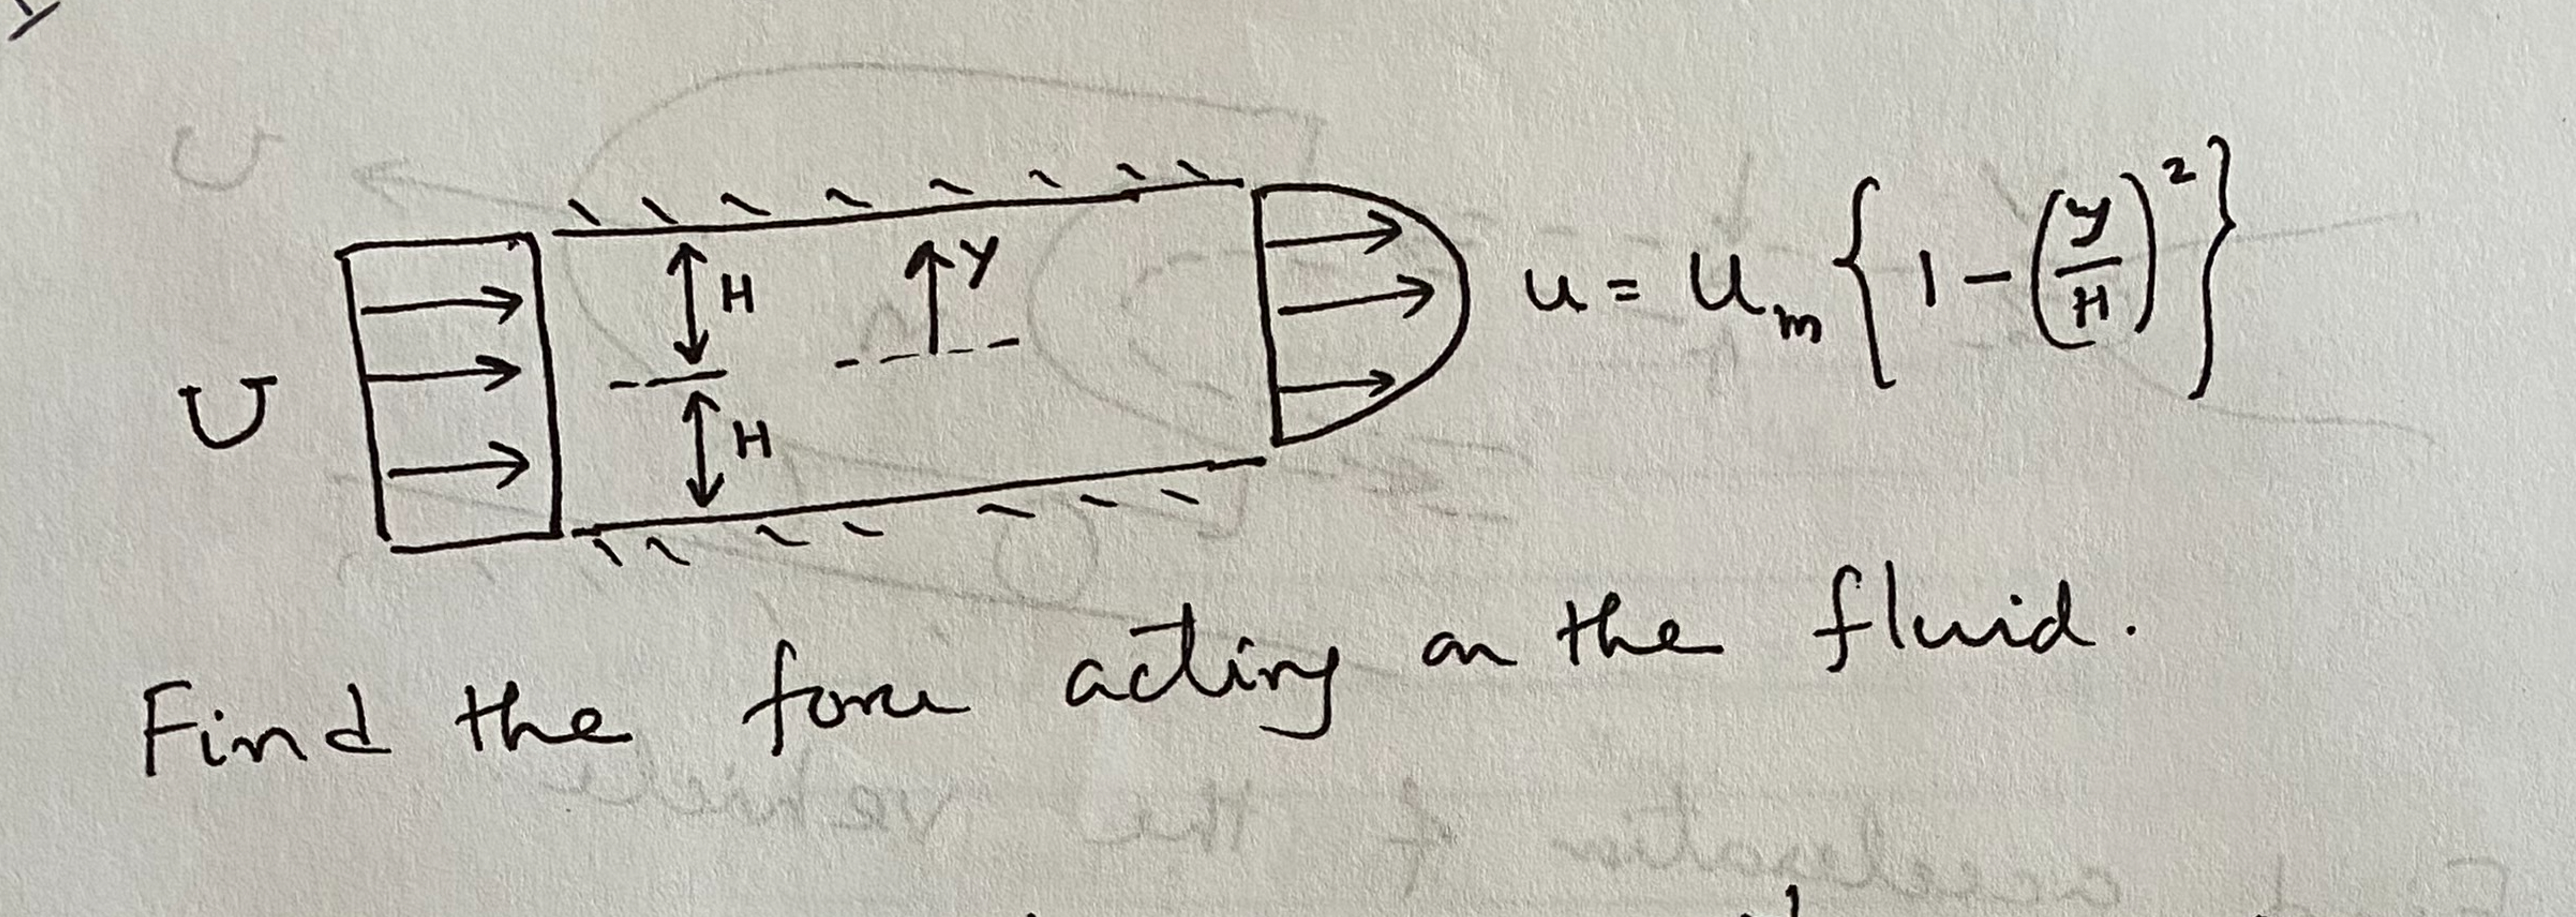 U
H
y
H
u = u_m { 1 - (y/H)^2 }
Find the force acting on the fluid.